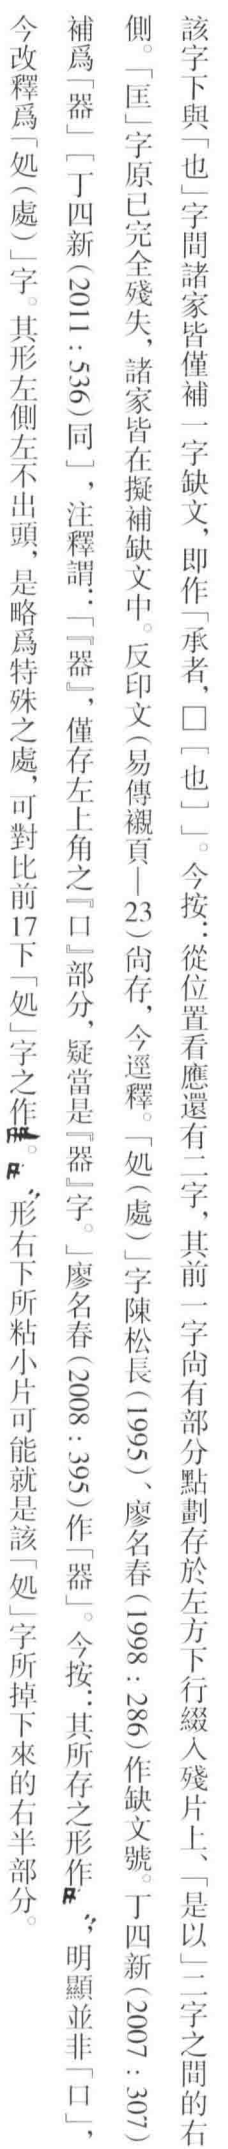 該字下與「也」字間諸家皆僅補一字缺文，即作「承者，□［也］」。今按：從位置看應還有二字，其前一字尚有部分點劃存於左方下行綴入殘片上、「是以」二字之間的右
側。「匡」字原已完全殘失，諸家皆在擬補缺文中。反印文（易傳襯頁—23）尚存，今逕釋。「処（處）」字陳松長（1995）、廖名春（1998：286）作缺文號。丁四新（2007：307）
補爲「器」［丁四新（2011：536）同］，注釋謂：「『器』，僅存左上角之『口』部分，疑當是『器』字。」廖名春（2008：395）作「器」。今按：其所存之形作，明顯並非「口」，
今改釋爲「処（處）」字。其形左側左不出頭，是略爲特殊之處，可對比前17下「処」字之作。形右下所粘小片可能就是該「処」字所掉下來的右半部分。